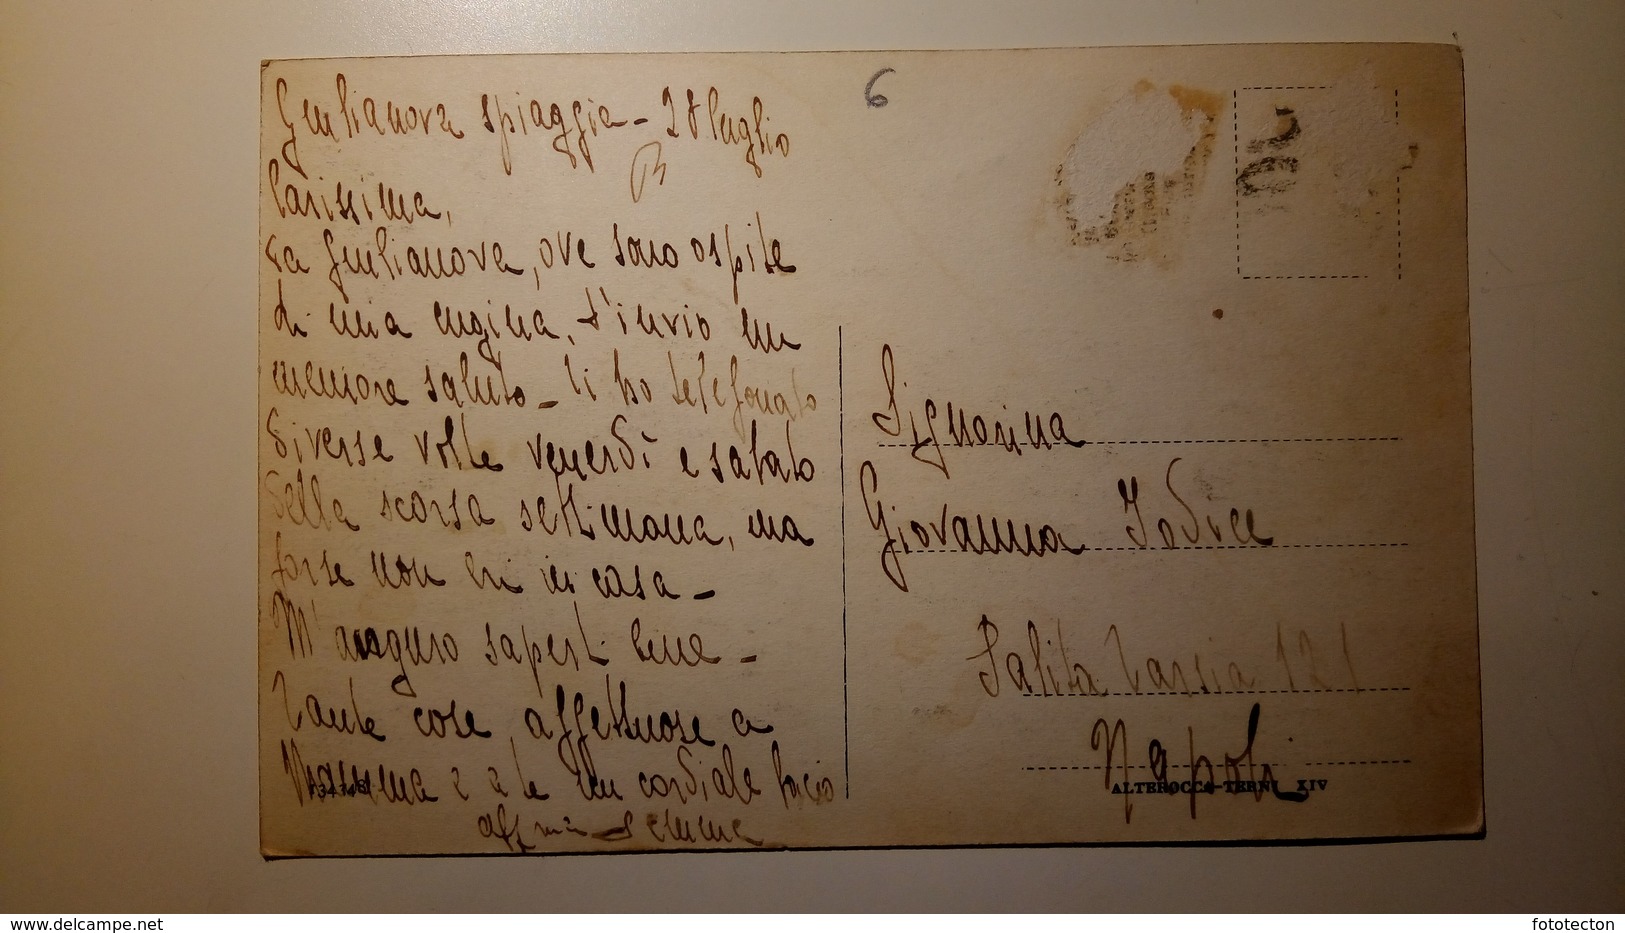 6
Giulianova spiaggia - 28 luglio
Carissima,
da Giulianova, ove sono ospite
di mia cugina, t'invio un
memore saluto - Ti ho telefonato
diverse volte venerdì e sabato
della scorsa settimana, ma
forse non eri in casa -
M'auguro saperti bene -
Tante cose affettuose a
Mamma e a te un cordiale bacio
Emma
Signorina
Giovanna Iodice
Salita Tarsia 121
Napoli
ALTEROCCA-TERNI XIV
delcampe.net
fototecton